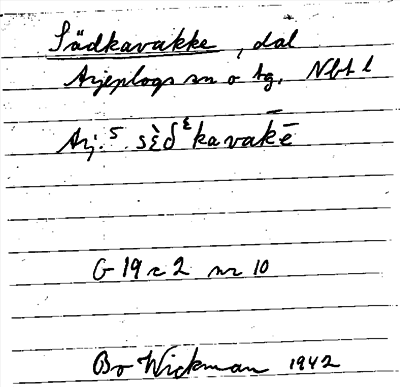 Sädkavakke, dal
Arjeplogs sn o tg. Nbt l
Arj. 5. sɛ̀δᵋkavak̄ē
G 19 c 2 nr 10
Bo Wickman 1942